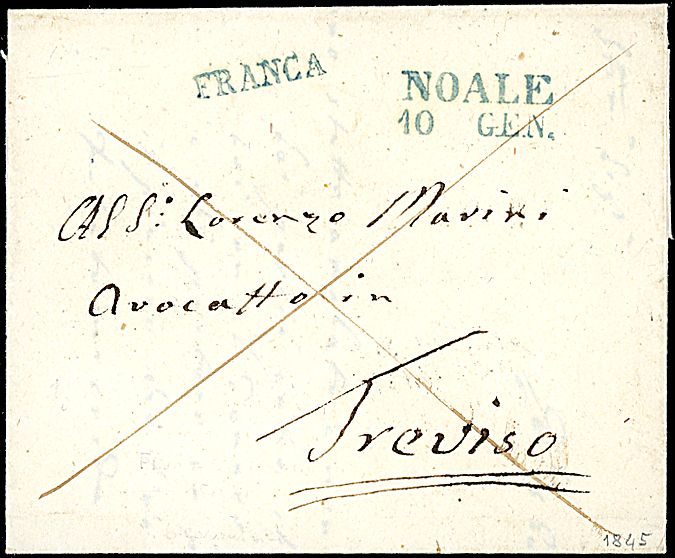 FRANCA
NOALE
10 GEN.
All S.: Lorenzo Marini
Avocatto in
Treviso
1845